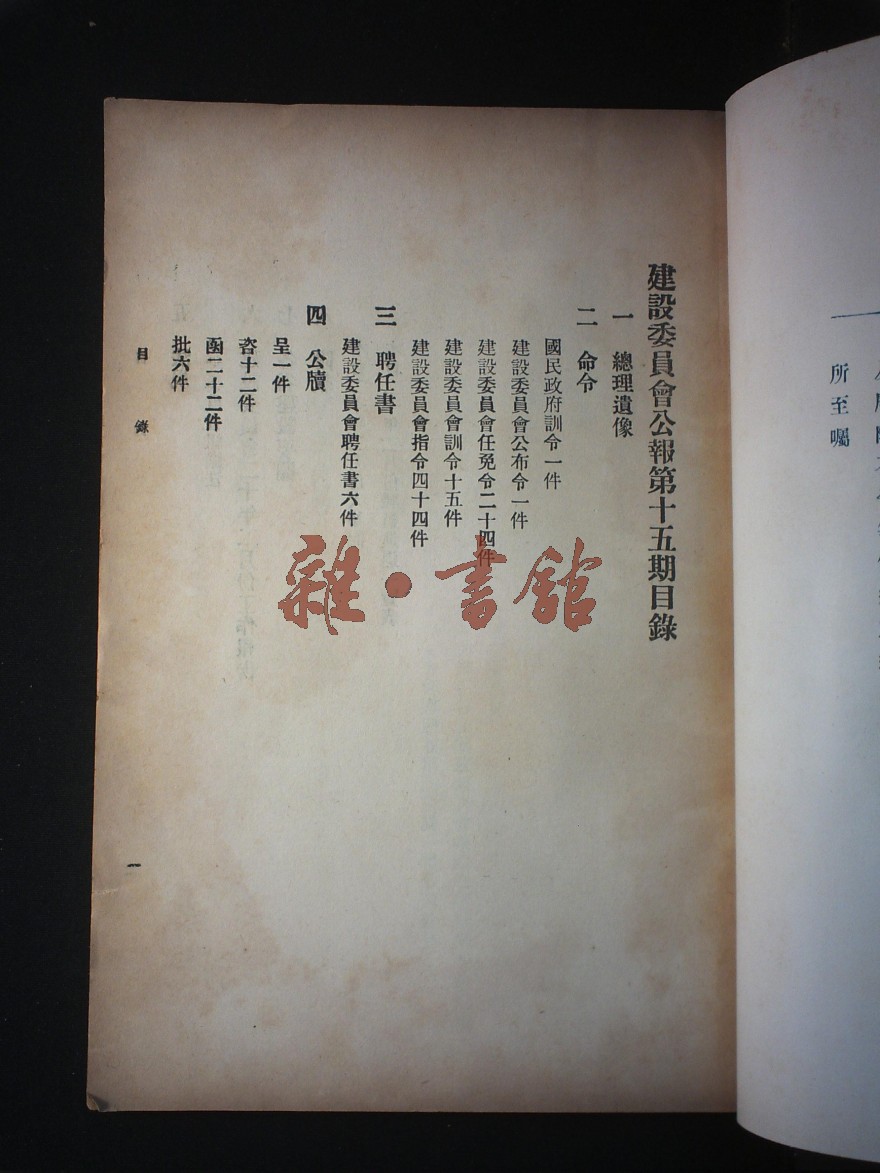 建設委員會公報第十五期目錄
一 總理遺像
二 命令
國民政府訓令一件
建設委員會公布令一件
建設委員會任免令二十四件
建設委員會訓令十五件
建設委員會指令四十四件
三 聘任書
建設委員會聘任書六件
四 公牘
呈一件
咨十二件
函二十二件
批六件
目 錄
一
所至囑
雜·書館